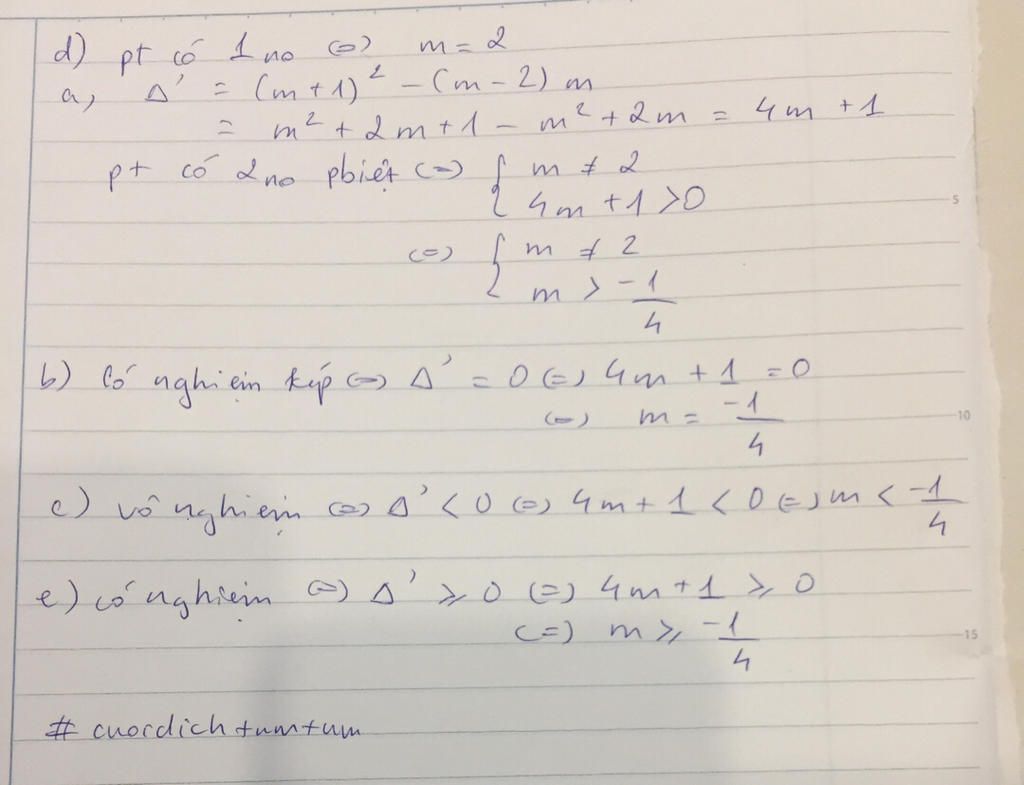 d) pt có 1 no (=) m = 2
a, Δ' = (m+1)² - (m-2) m
= m² + 2m + 1 - m² + 2m = 4m + 1
pt có 2 no pbiệt (=) { m ≠ 2
4m + 1 > 0
(=) { m ≠ 2
m > -1/4
5
b) Có nghiệm kép (=) Δ' = 0 (=) 4m + 1 = 0
(=) m = -1/4
10
c) vô nghiệm (=) Δ' < 0 (=) 4m + 1 < 0 (=) m < -1/4
e) có nghiệm (=) Δ' ⩾ 0 (=) 4m + 1 ⩾ 0
(=) m ⩾ -1/4
15
# cuordichtumtum